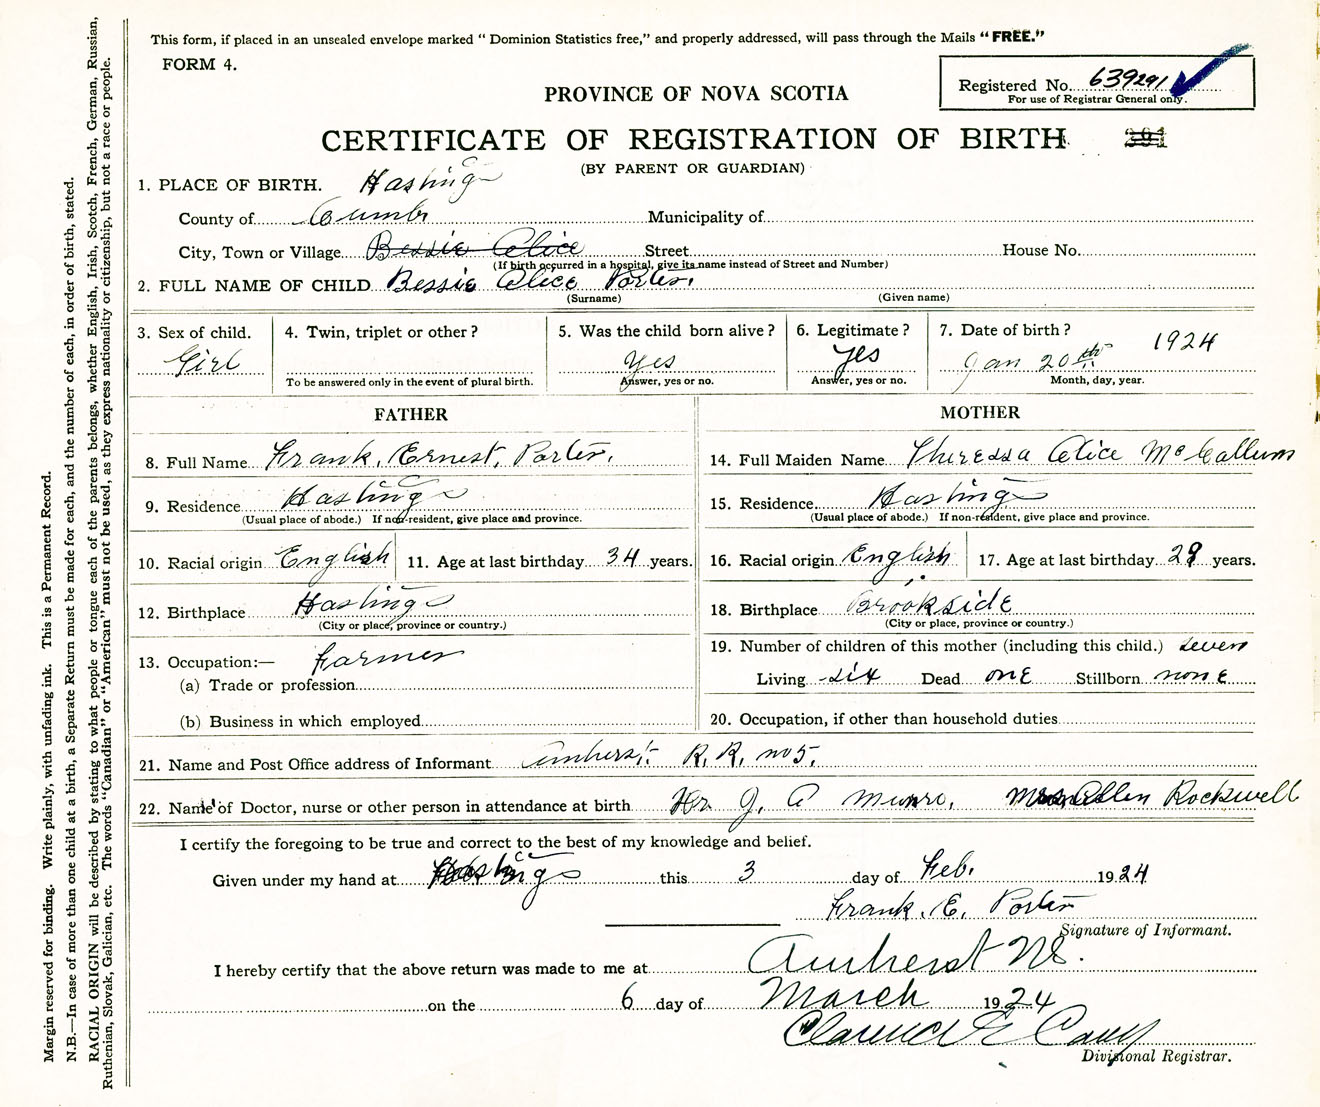 This form, if placed in an unsealed envelope marked " Dominion Statistics free," and properly addressed, will pass through the Mails "FREE."
FORM 4.
Registered No. 639291
For use of Registrar General only.
PROVINCE OF NOVA SCOTIA
CERTIFICATE OF REGISTRATION OF BIRTH
(BY PARENT OR GUARDIAN)
1. PLACE OF BIRTH. Hastings
County of Cumb Municipality of
City, Town or Village Bessie Alice Street House No.
(If birth occurred in a hospital, give its name instead of Street and Number)
2. FULL NAME OF CHILD Bessie Alice Porter.
(Surname) (Given name)
3. Sex of child. 4. Twin, triplet or other? 5. Was the child born alive? 6. Legitimate? 7. Date of birth? 1924
Girl yes yes Jan 20th
To be answered only in the event of plural birth. Answer, yes or no. Answer, yes or no. Month, day, year.
FATHER MOTHER
8. Full Name Frank, Ernest, Porter. 14. Full Maiden Name Theressa Alice McCallum
9. Residence Hastings 15. Residence Hastings
(Usual place of abode.) If non-resident, give place and province. (Usual place of abode.) If non-resident, give place and province.
10. Racial origin English 11. Age at last birthday 34 years. 16. Racial origin English 17. Age at last birthday 29 years.
12. Birthplace Hastings 18. Birthplace Brookside
(City or place, province or country.) (City or place, province or country.)
13. Occupation:— Farmer 19. Number of children of this mother (including this child.) seven
(a) Trade or profession Living six Dead one Stillborn none
(b) Business in which employed 20. Occupation, if other than household duties
21. Name and Post Office address of Informant Amherst R. R. no 5.
22. Name of Doctor, nurse or other person in attendance at birth J. A Munro, Mrs Allen Rockwell
I certify the foregoing to be true and correct to the best of my knowledge and belief.
Given under my hand at Hastings this 3 day of Feb. 1924
Frank, E, Porter
Signature of Informant.
I hereby certify that the above return was made to me at Amherst NS.
on the 6 day of March 1924
Clarence E
Divisional Registrar.
Margin reserved for binding. Write plainly, with unfading ink. This is a Permanent Record.
N.B.—In case of more than one child at a birth, a Separate Return must be made for each, and the number of each, in order of birth, stated.
RACIAL ORIGIN will be described by stating to what people or tongue each of the parents belongs, whether English, Irish, Scotch, French, German, Russian,
Ruthenian, Slovak, Galician, etc. The words "Canadian" or "American" must not be used, as they express nationality or citizenship, but not a race or people.